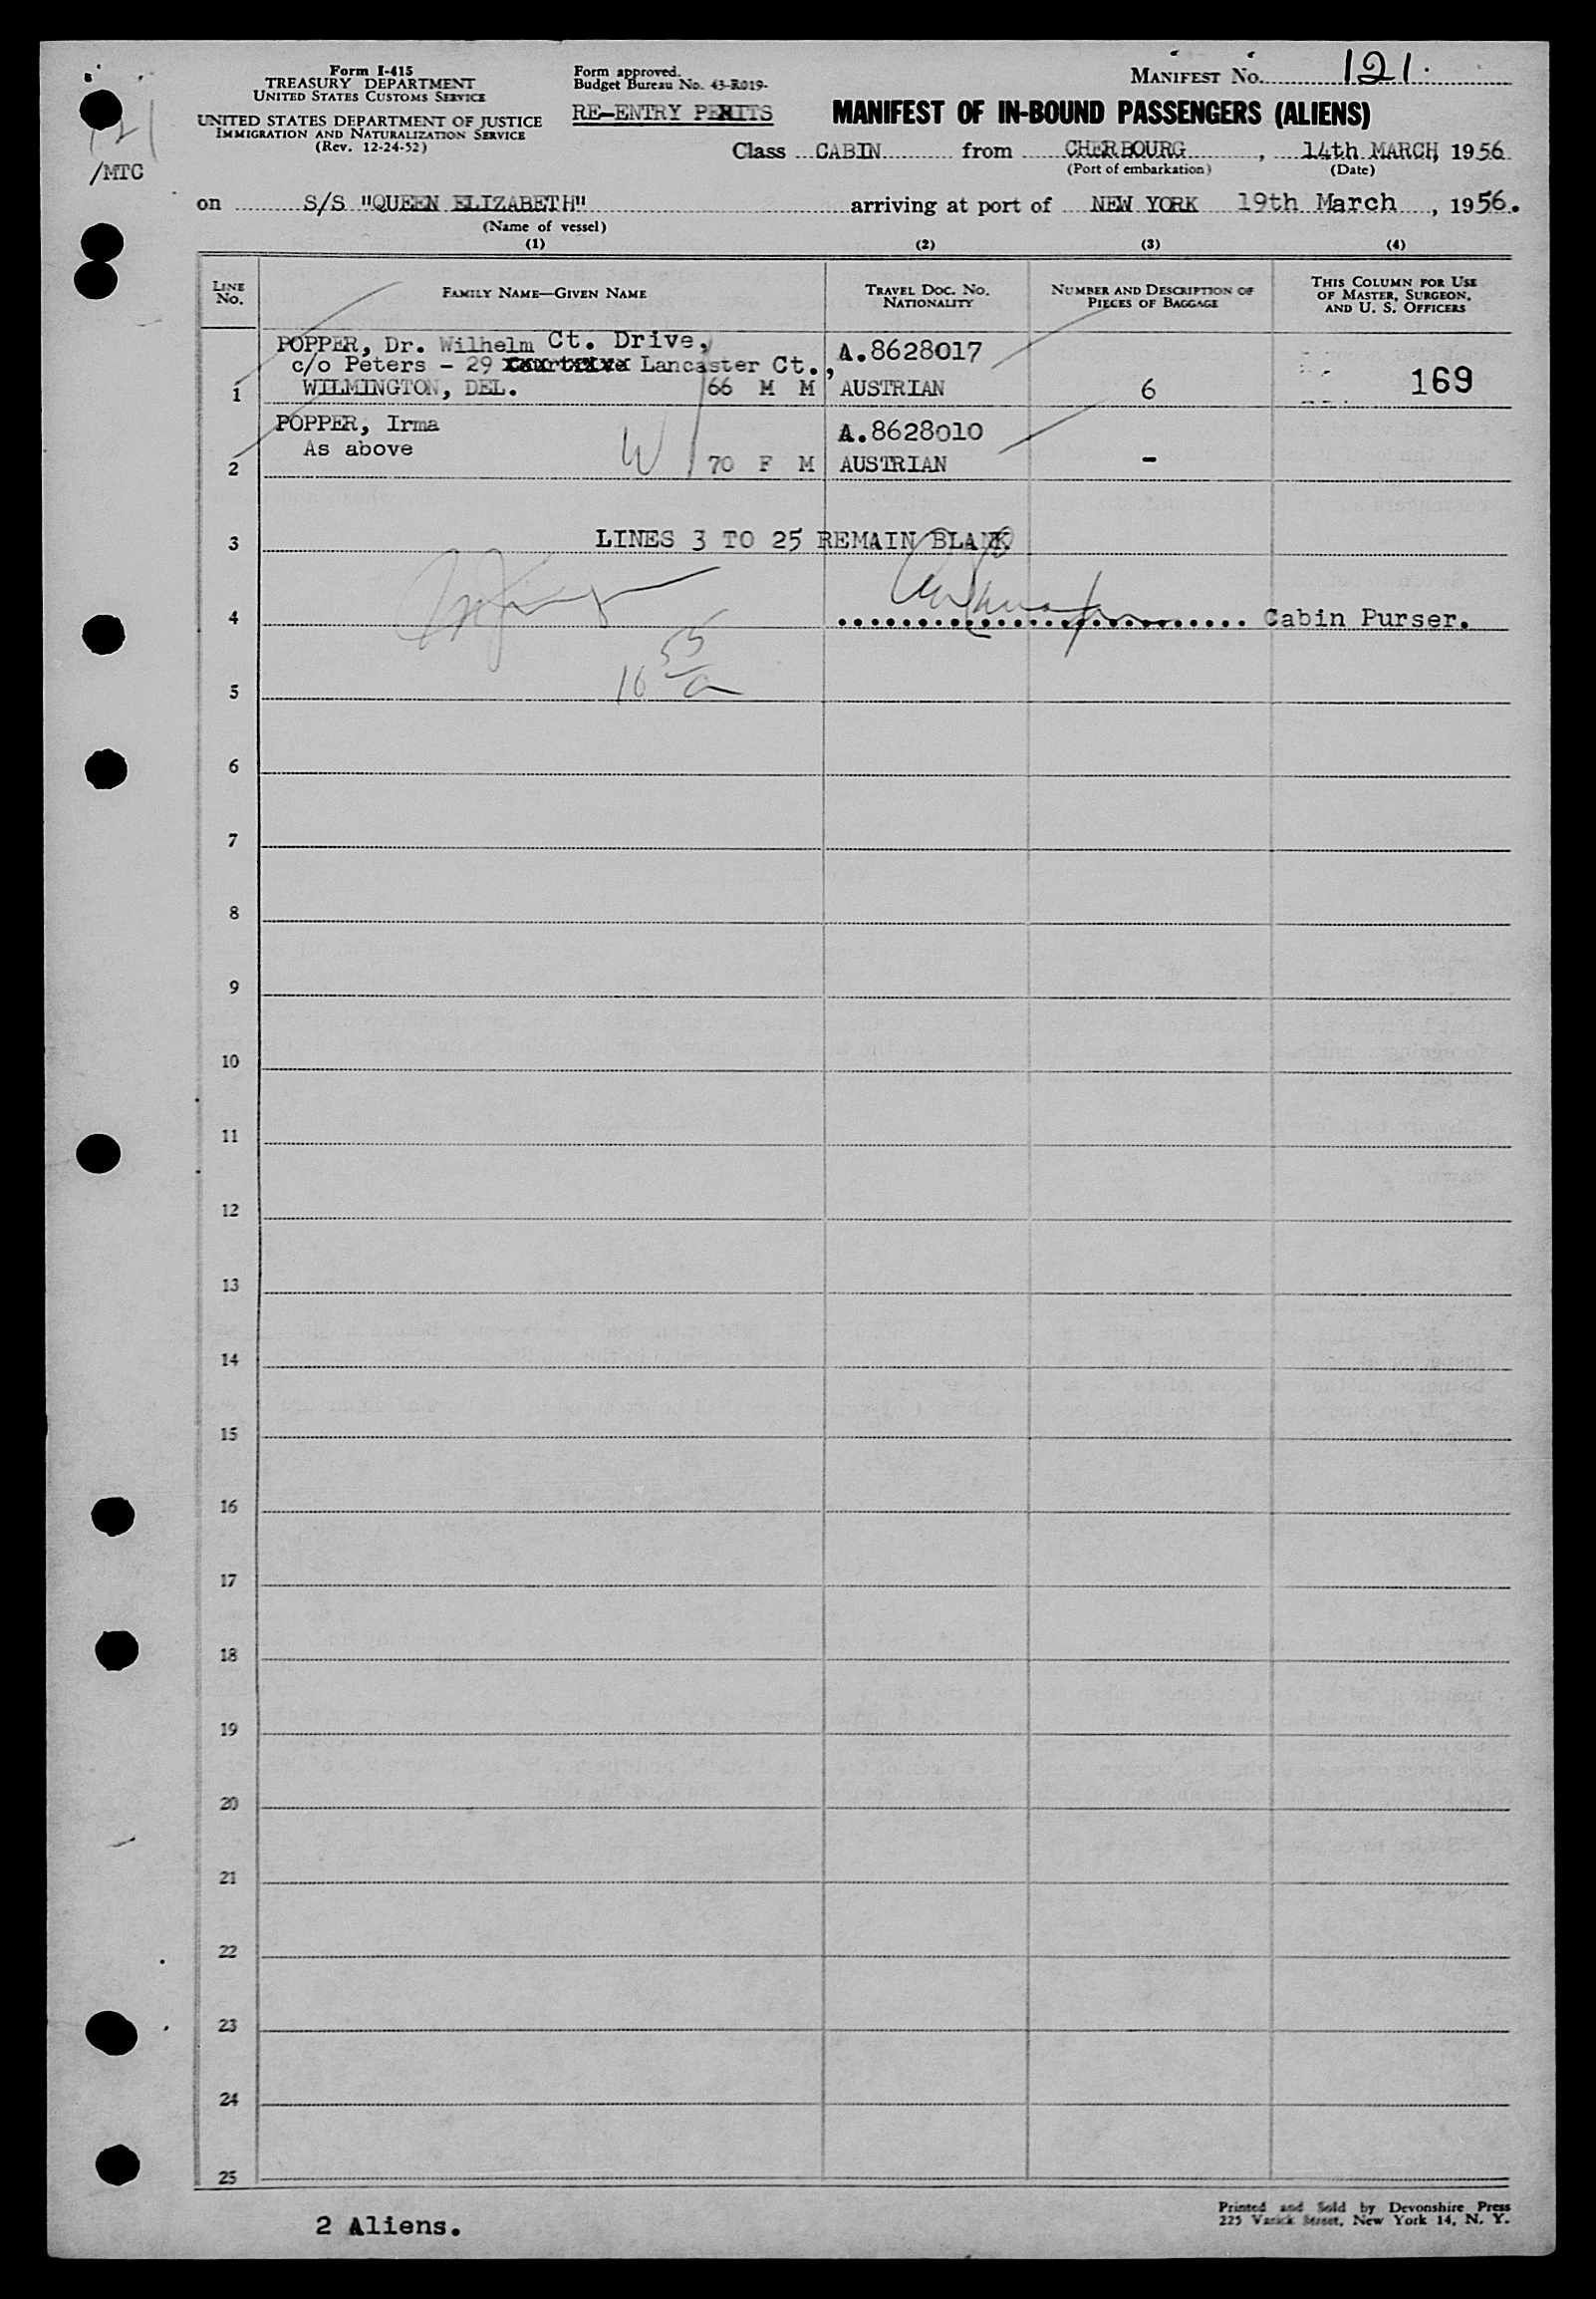 Form I-415
TREASURY DEPARTMENT
UNITED STATES CUSTOMS SERVICE
UNITED STATES DEPARTMENT OF JUSTICE
IMMIGRATION AND NATURALIZATION SERVICE
(Rev. 12-24-52)
121
/MTC
Form approved.
Budget Bureau No. 43-R019-
RE-ENTRY PERMITS
MANIFEST NO. 121.
MANIFEST OF IN-BOUND PASSENGERS (ALIENS)
Class CABIN from CHERBOURG, 14th MARCH, 1956
(Port of embarkation) (Date)
on S/S "QUEEN ELIZABETH" arriving at port of NEW YORK 19th March, 1956.
(Name of vessel)
(1) (2) (3) (4)
LINE NO.
FAMILY NAME—GIVEN NAME
TRAVEL DOC. NO.
NATIONALITY
NUMBER AND DESCRIPTION OF
PIECES OF BAGGAGE
THIS COLUMN FOR USE
OF MASTER, SURGEON,
AND U. S. OFFICERS
POPPER, Dr. Wilhelm Ct. Drive, A.8628017
c/o Peters - 29 Lancaster Ct.,
1 WILMINGTON, DEL. 66 M M AUSTRIAN 6 169
POPPER, Irma A.8628010
As above W
2 70 F M AUSTRIAN -
3 LINES 3 TO 25 REMAIN BLANK
4 Cabin Purser.
16 55/a
5
6
7
8
9
10
11
12
13
14
15
16
17
18
19
20
21
22
23
24
25
2 Aliens.
Printed and Sold by Devonshire Press
225 Varick Street, New York 14, N. Y.